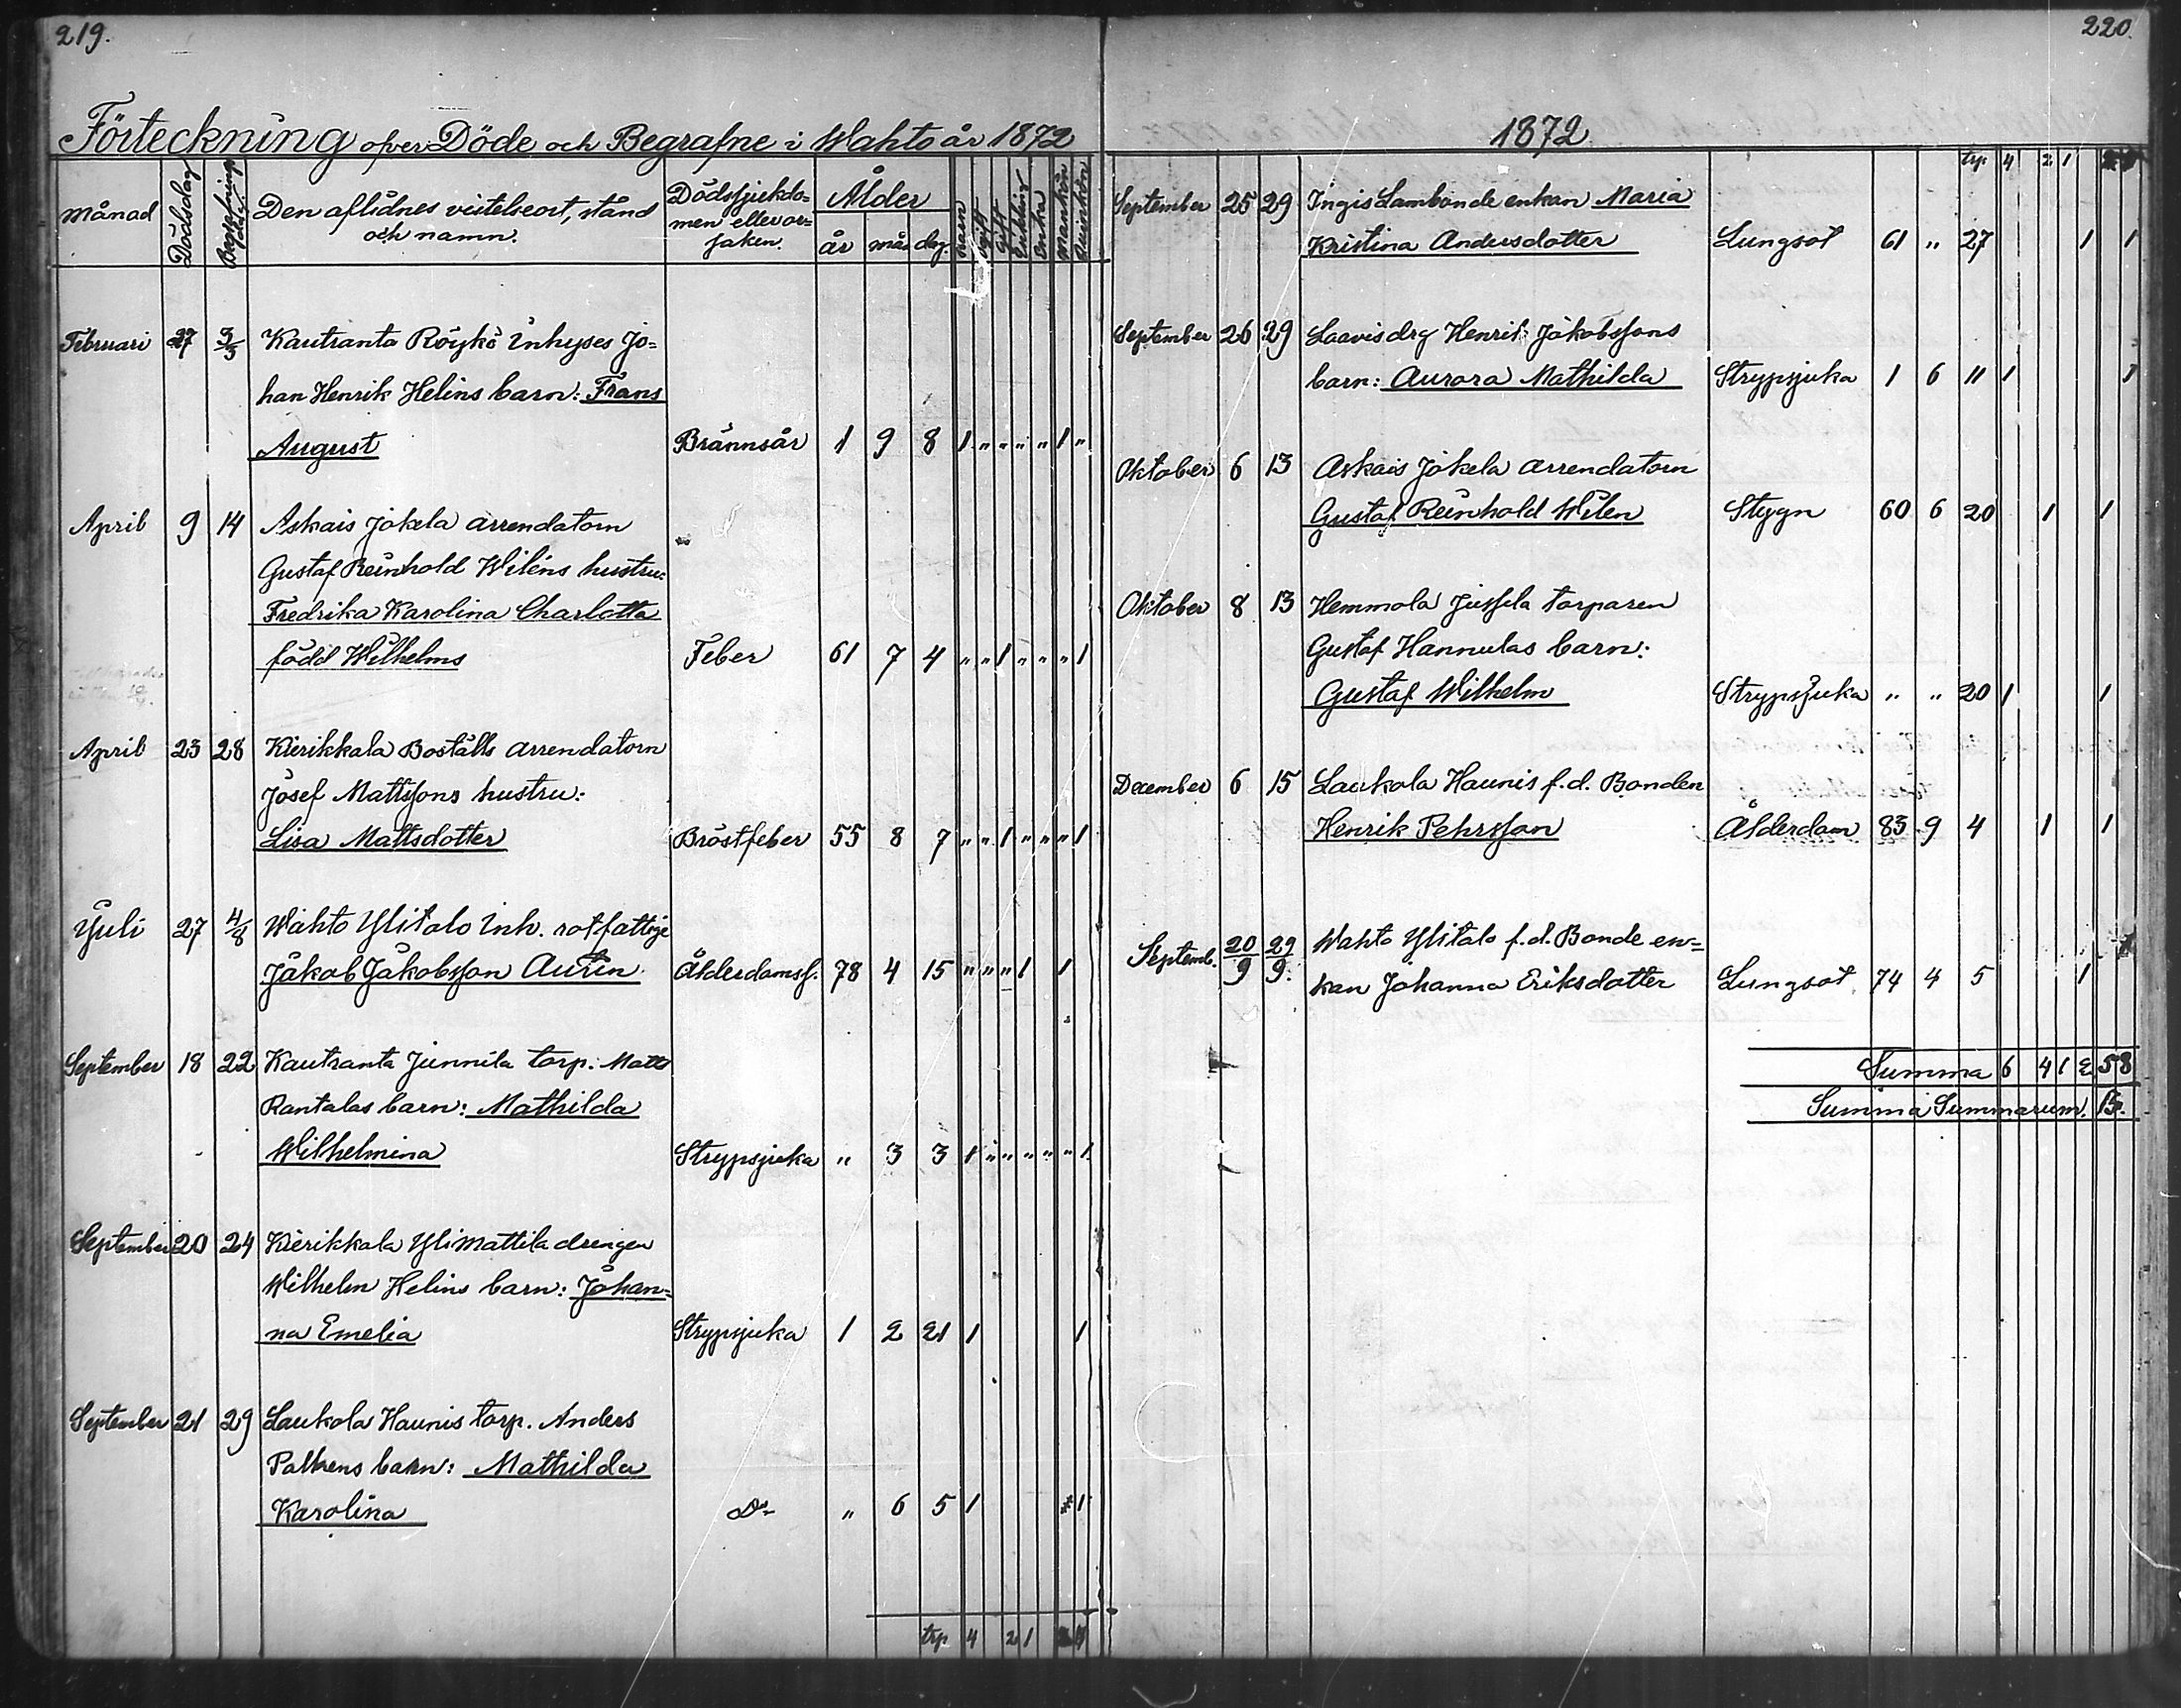 219.
Förteckning öfver Döde och Begrafne i Wahto år 1872
Månad Dödsdag Begrafnings dag Den aflidnes vistelseort, stånd och namn. Dödssjukdomen eller orsaken. Ålder år mån dag Barn Ogift Gift Enkling Enka Mankön Qvinkön
Februari 27 3/3 Kautranta Röykö Inhyses Jo=
han Henrik Helins barn: Frans
August Brännsår 1 9 8 1 " " " " 1 "
April 9 14 Askais Jokela arrendatorn
Gustaf Reinhold Wiléns hustru:
Fredrika Karolina Charlotta
född Wilhelms Feber 61 7 4 " " 1 " " " 1
April 23 28 Kierikkala Boställs arrendatorn
Josef Mattssons hustru:
Lisa Mattsdotter Bröstfeber 55 8 7 " " 1 " " " 1
Juli 27 4/8 Wahto Ylitalo Inh. rotfattige
Jakob Jakobsson Aurén Ålderdomsf. 78 4 15 " " " 1 1
September 18 22 Kautranta Junnila torp. Matts
Rantalas barn: Mathilda
Wilhelmina Strypsjuka " 3 3 1 " " " " " 1
September 20 24 Kierikkala Ylimattila drengen
Wilhelm Helins barn: Johan=
na Emelia Strypsjuka 1 2 21 1 1
September 21 29 Laukola Haunis torp. Anders
barn: Mathilda
Karolina Do " 6 5 1 1
trp 4 2 1
220.
1872
trp 4 2 1
September 25 29 Ingis Lambonde enkan Maria
Kristina Andersdotter Lungsot 61 " 27 1 1
September 26 29 Laavis drg Henrik Jakobssons
barn: Aurora Mathilda Strypsjuka 1 6 11 1 1
Oktober 6 13 Askais Jokela arrendatorn
Gustaf Reinhold Wilen Stygn 60 6 20 1 1
Oktober 8 13 Hemmola Jussila torparen
Gustaf Hannulas barn:
Gustaf Wilhelm Strypsjuka " " 20 1 1
December 6 15 Laukola Haunis f.d. Bonden
Henrik Pehrsson Ålderdom 83 9 4 1 1
Septemb. 20/9 29/9. Wahto Ylitalo f.d. Bonde en=
kan Johanna Eriksdotter Lungsot 74 4 5 1 1
Summa 6 4 1 2 5 8
Summa Summarum. 13.